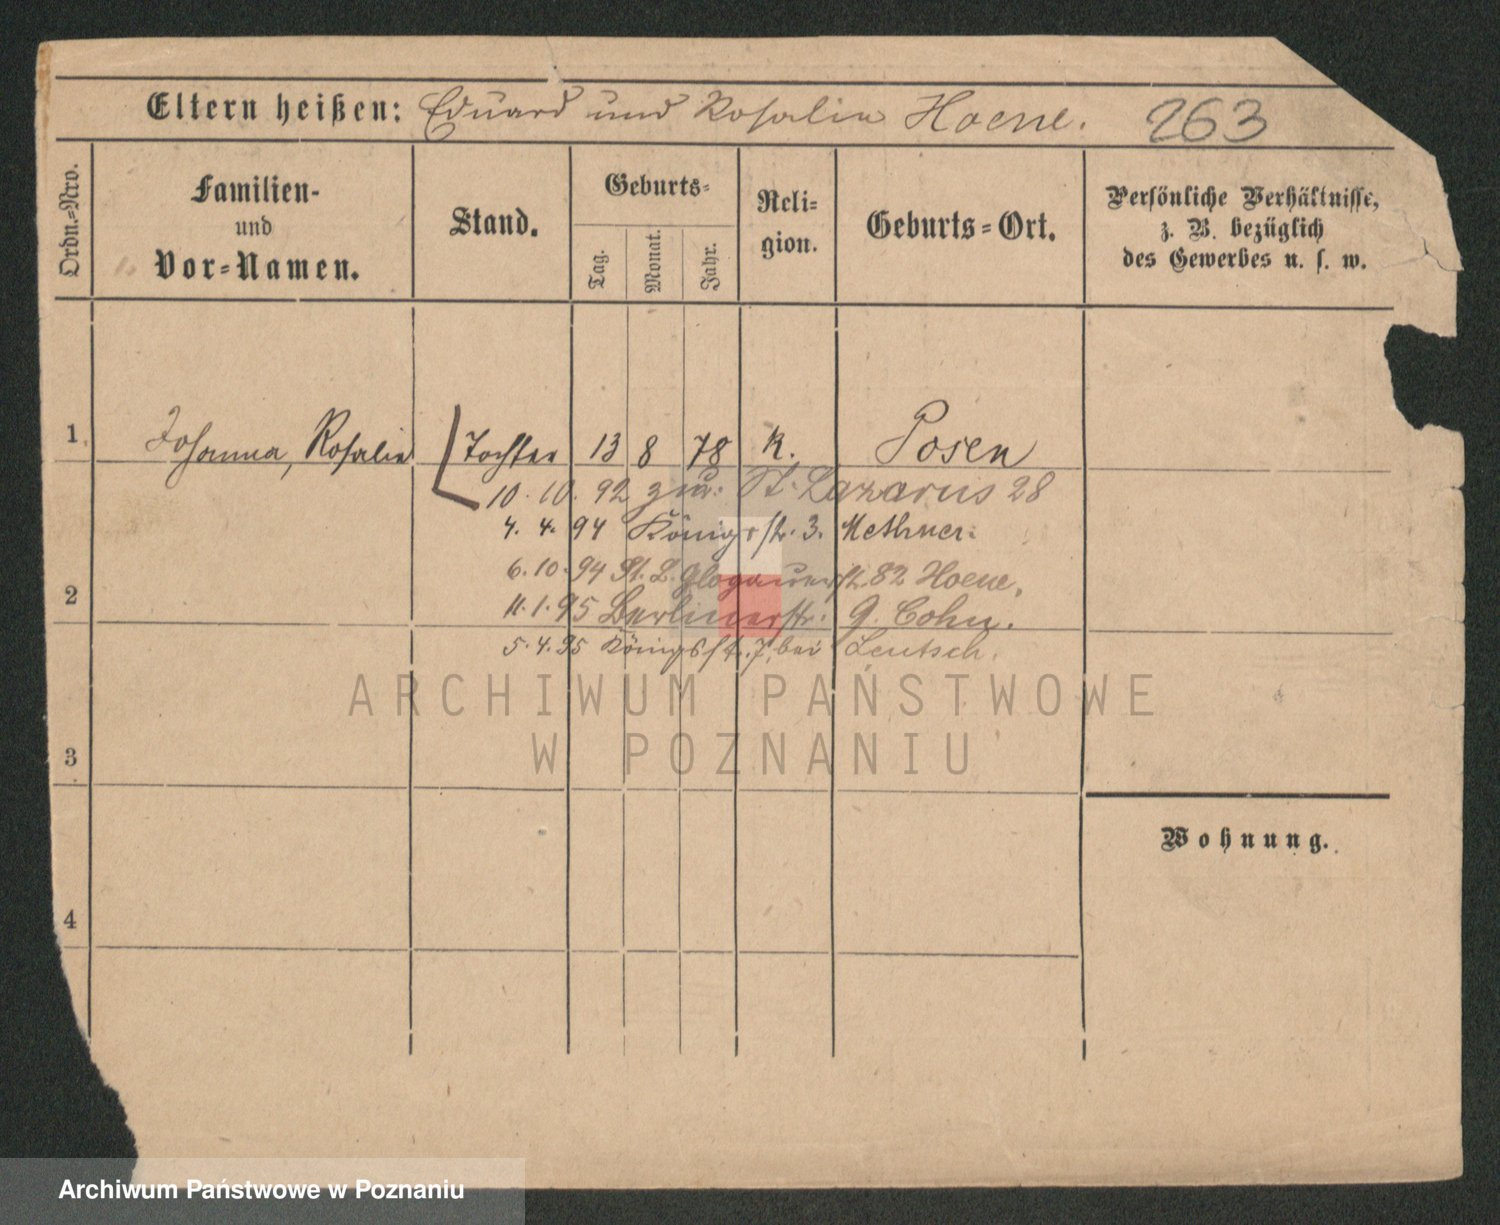 Eltern heißen: Eduard und Rosalie Hoene. 263
Ordn.=Nro.
Familien-
und
Vor=Namen.
Stand.
Geburts=
Tag.
Monat.
Jahr.
Reli=
gion.
Geburts=Ort.
Persönliche Verhältnisse,
z. B. bezüglich
des Gewerbes u. s. w.
1 Johanna, Rosalie Tochter 13 8 78 K. Posen
10. 10. 92 zur. St. Lazarus 28
4. 4. 94 Königsstr. 3. Methner.
6. 10. 94 St. L. Glogauerstr. 82 Hoene,
2
11. 1. 95 Berlinerstr. 9. Cohn.
5. 4. 95 Königsstr. 7, bei Leutsch.
ARCHIWUM PAŃSTWOWE
W POZNANIU
3
Wohnung.
4
Archiwum Państwowe w Poznaniu